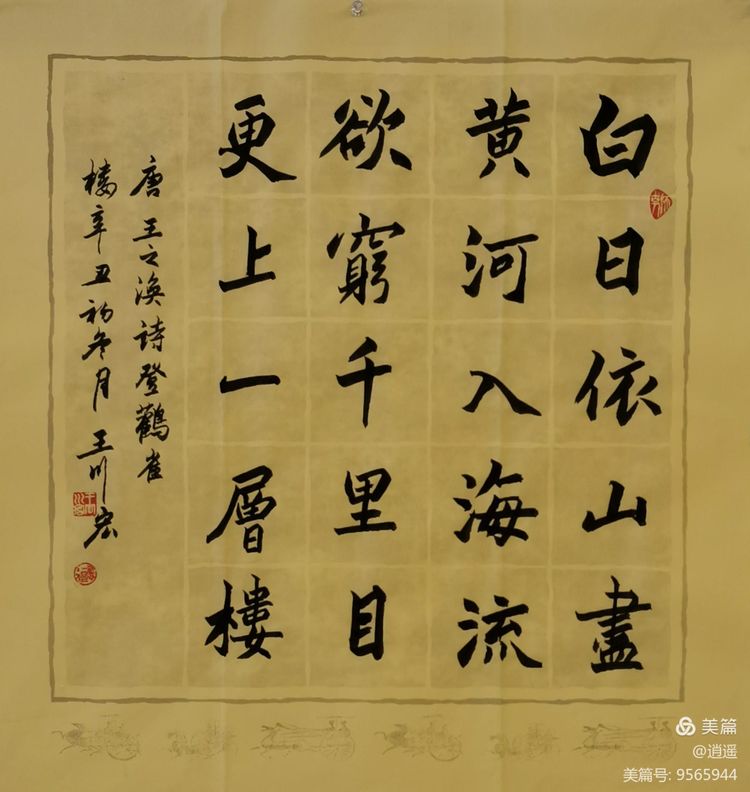 白日依山盡
黄河入海流
欲窮千里目
更上一層樓
唐王之渙詩登鸛雀
樓辛丑初冬月王川宏
美篇
@逍遥
美篇号: 9565944